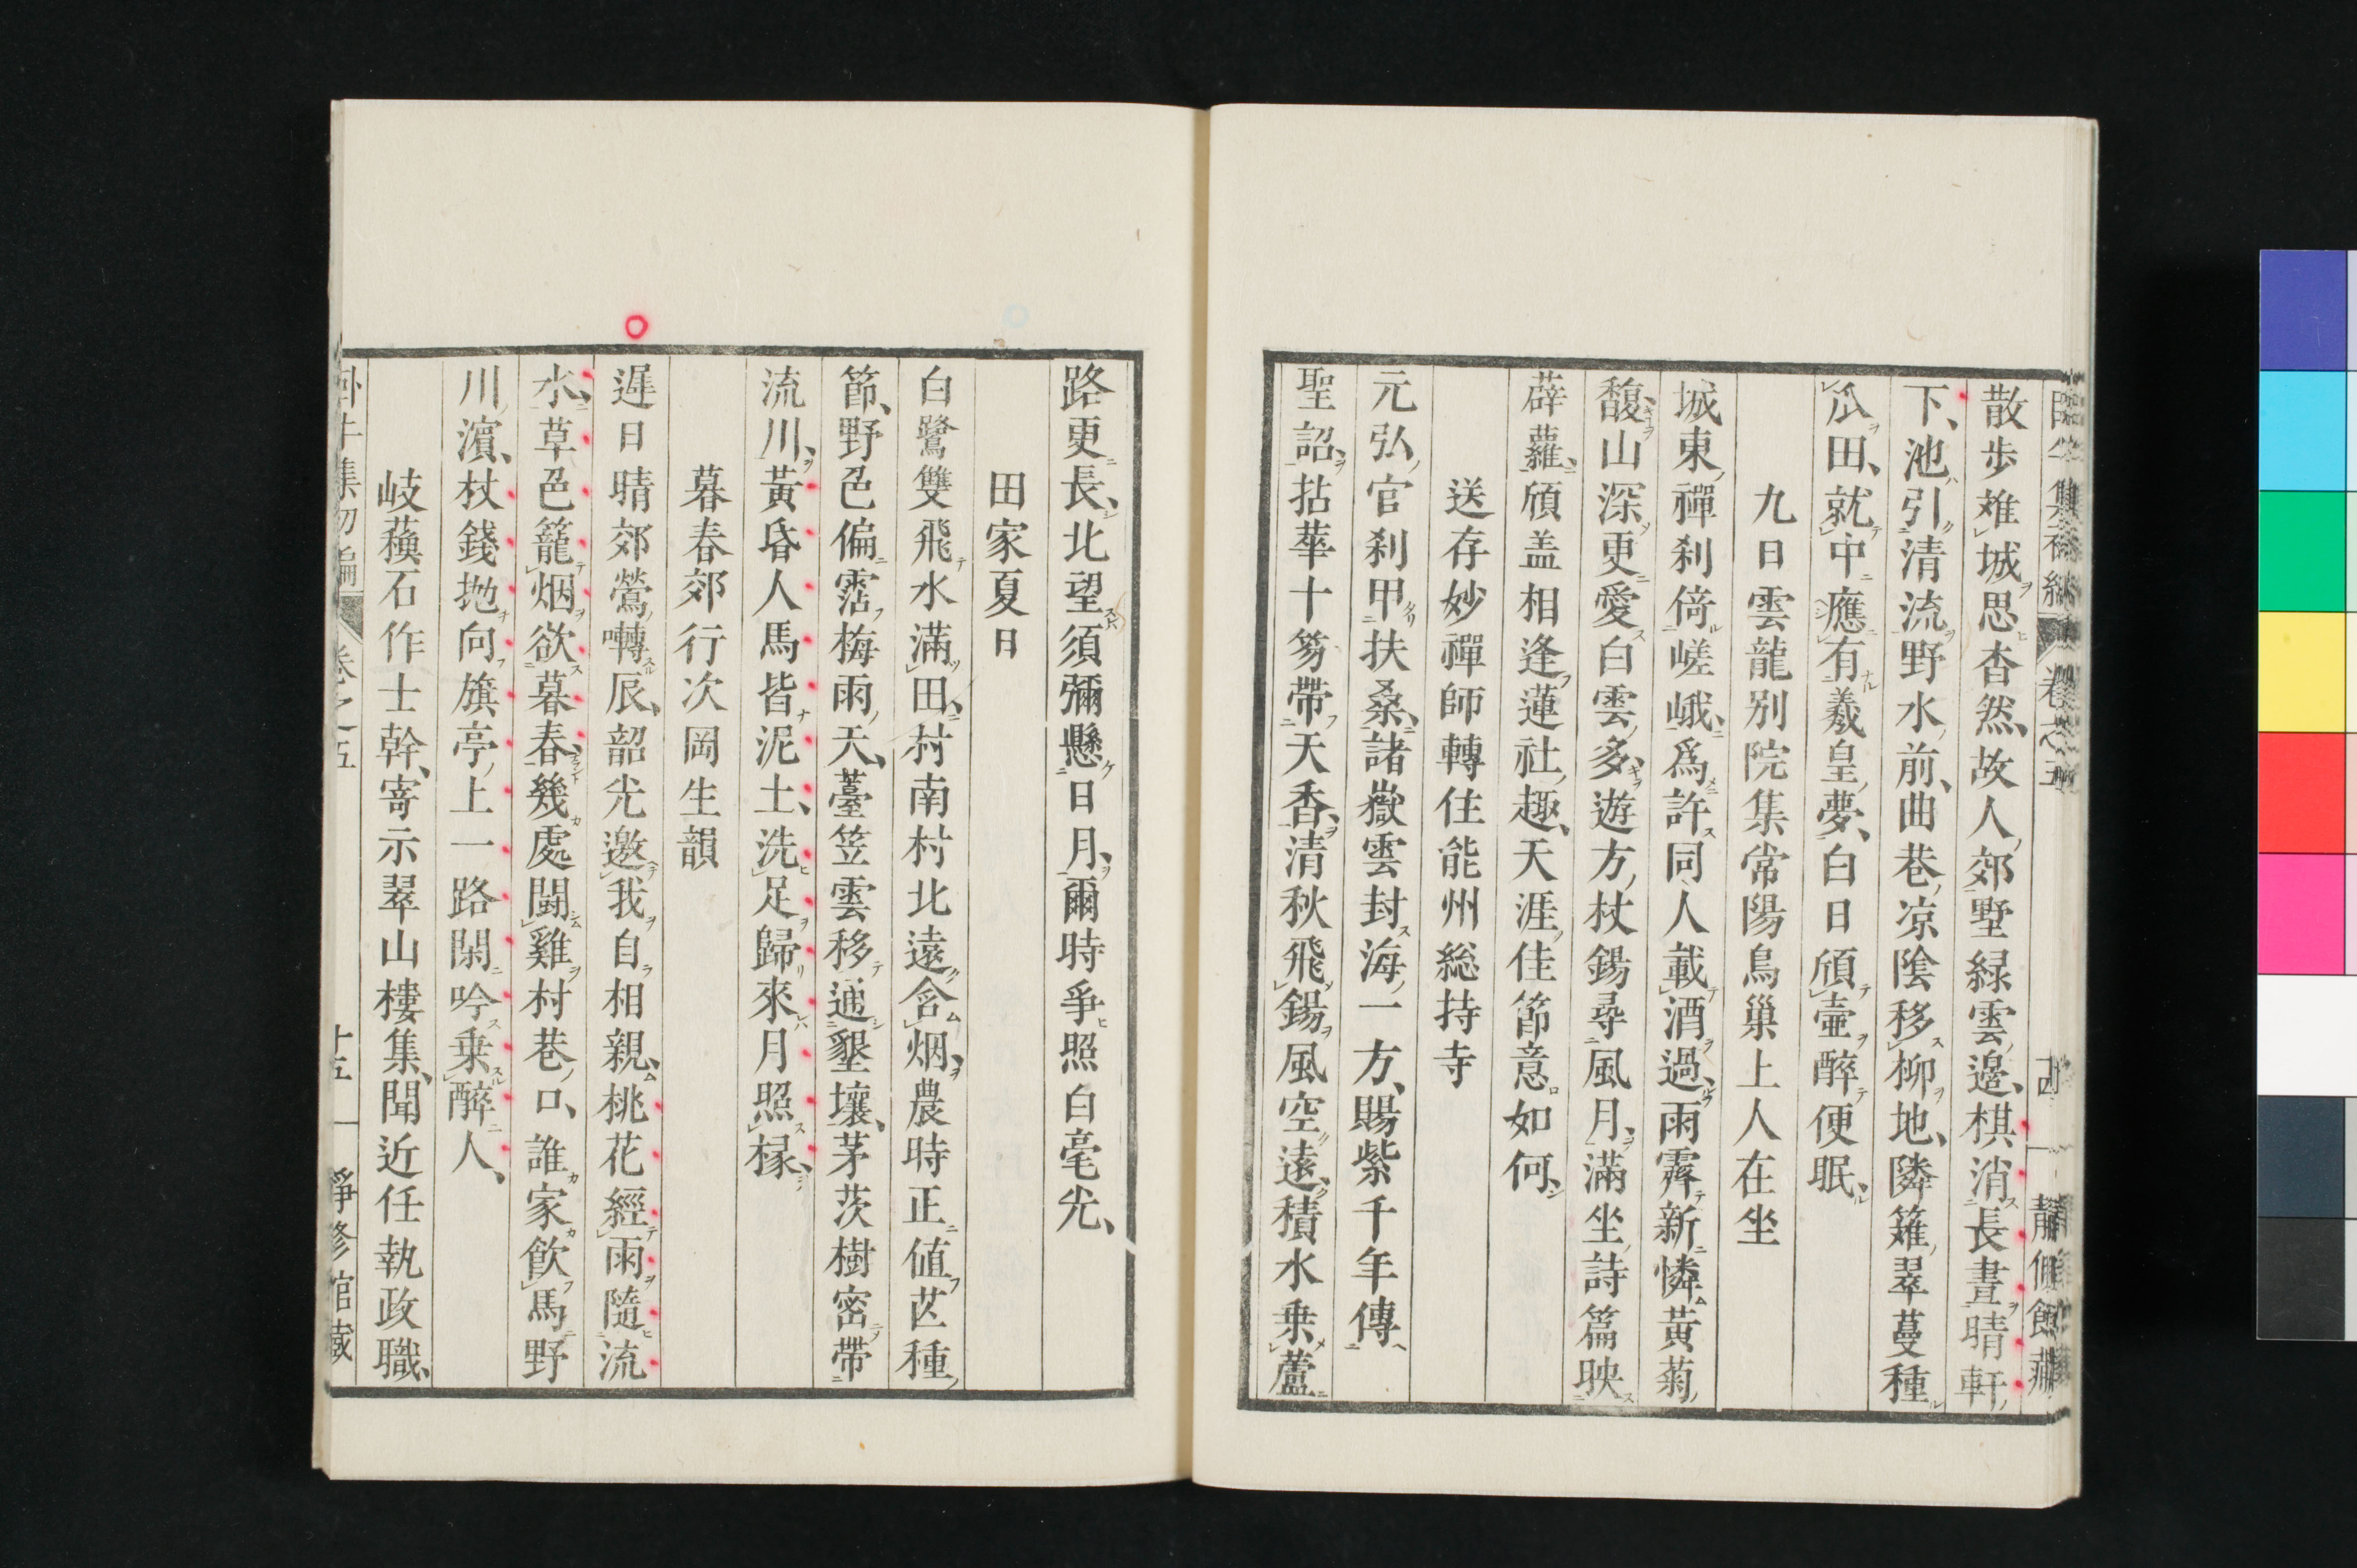 散歩難城思杳然、故人郊墅緑雲邊、棋消長晝晴軒
下、池引清流野水前、曲巷凉陰移柳地、隣籬翠蔓種
瓜田、就中應有羲皇夢、白日傾壷醉便眠、
九日雲龍別院集常陽鳥巢上人在坐
城東禪刹倚嵯峨、爲許同人載酒過、雨霽新憐黃菊
馥、山深更愛白雲多、遊方杖錫尋風月、滿坐詩篇映
薜蘿、傾盖相逢蓮社趣、天涯佳節意如何、
送存妙禪師轉住能州総持寺
元弘官刹甲扶桑、諸嶽雲封海一方、賜紫千年傳
聖詔、拈華十笏帶天香、清秋飛錫風空遠、積水乗蘆
路更長、北望須彌懸日月、爾時爭照白毫光、
田家夏日
白鷺雙飛水滿田、村南村北遠含烟、農時正値芒種
節、野色偏霑梅雨天、薹笠雲移通墾壤、茅茨樹密帶
流川、黃昏人馬皆泥土、洗足歸來月照椽、
暮春郊行次岡生韻
遲日晴郊鶯囀辰、韶光邀我自相親、桃花經雨隨流
水、草色籠烟欲暮春、幾處鬪雞村巷口、誰家飮馬野
川濱、杖錢抛向旗亭上一路閑吟乗醉人、
岐蘓石作士幹、寄示翠山樓集、聞近任執政職、
卧牛集初編 卷之五 十五 靜修館藏